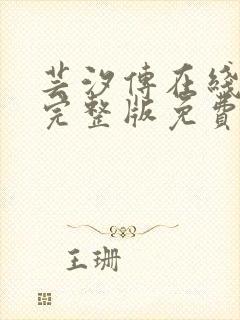 芸汐傳在綫
完整版免費
王珊